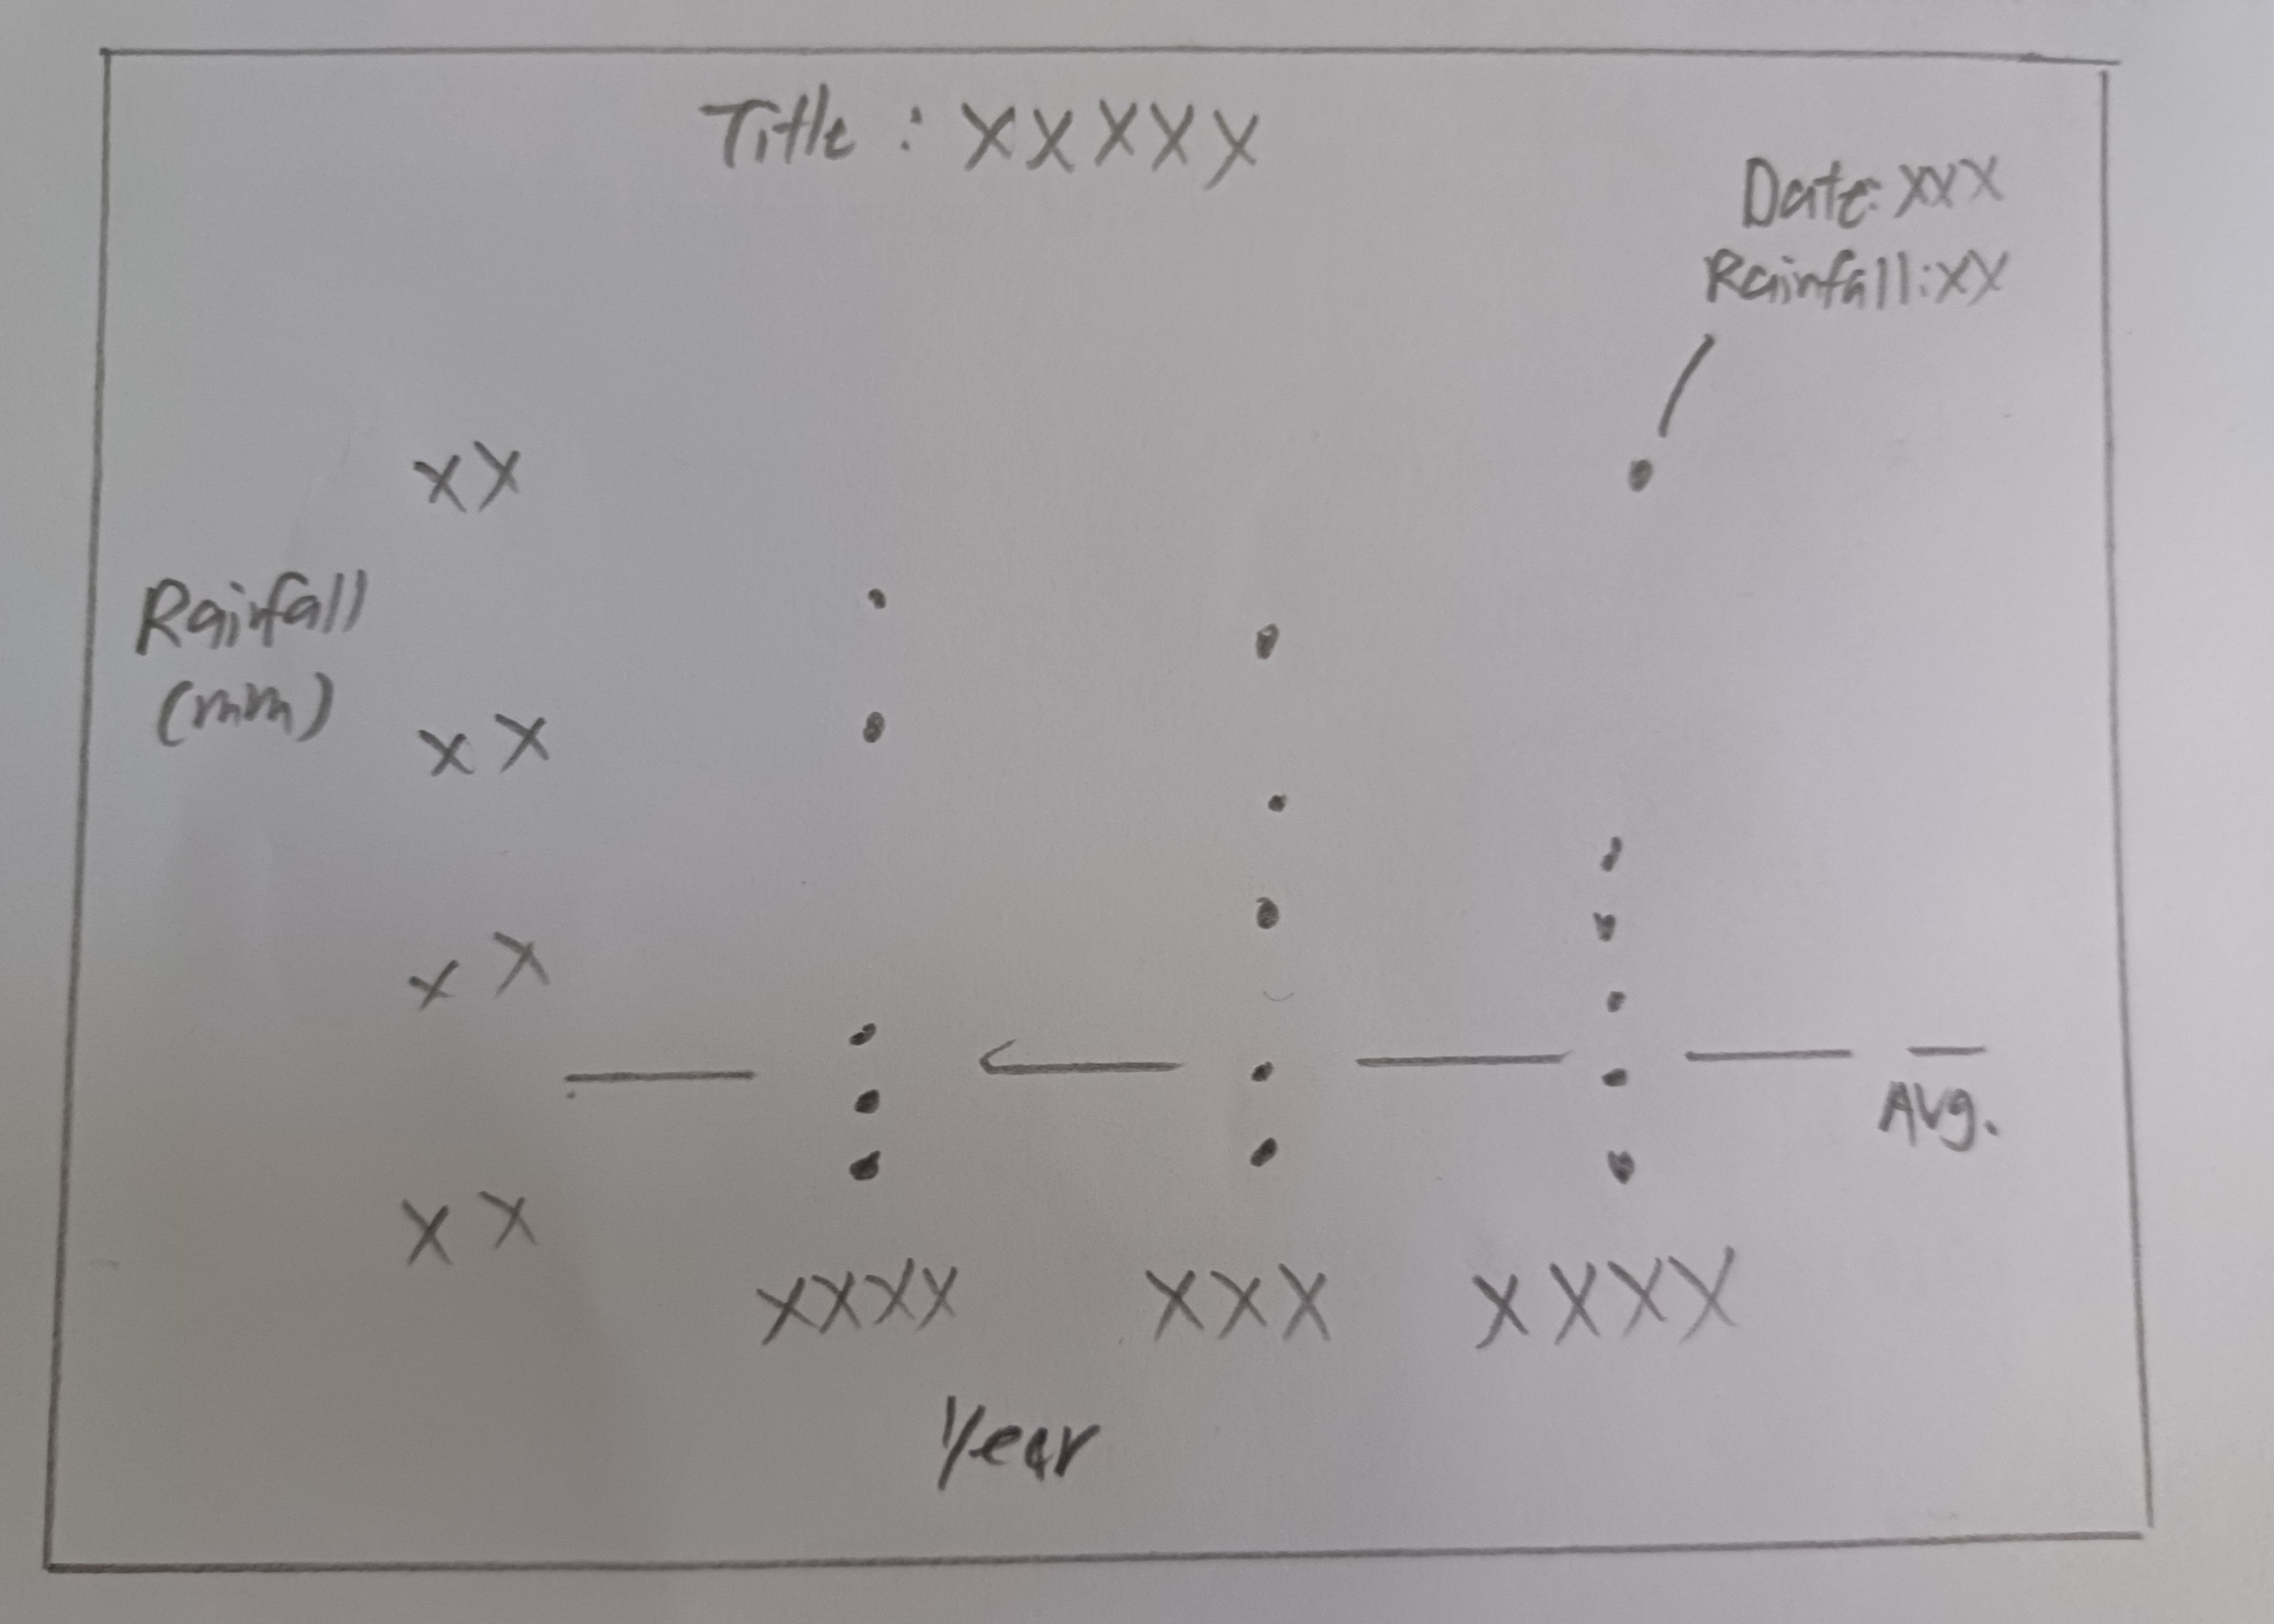 Title : XXXXX
Date: XXX
Rainfall: XX
XX
Rainfall
(mm)
XX
XX
Avg.
XX
XXXX XXX XXXX
Year